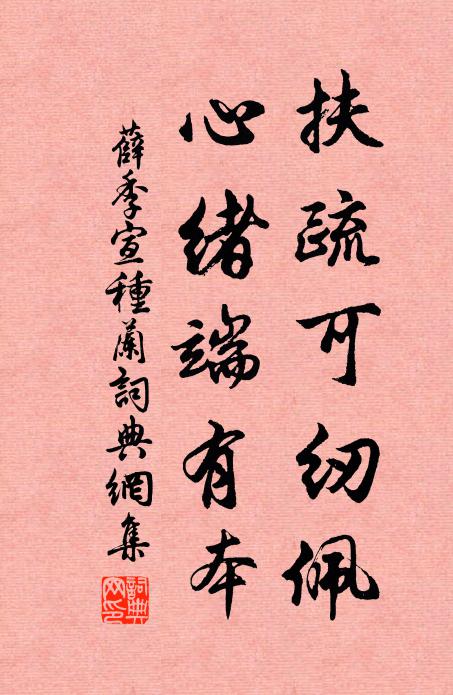 扶疏可紉佩
心緒端有本
薛季宣種蘭詞典網集
詞典网印